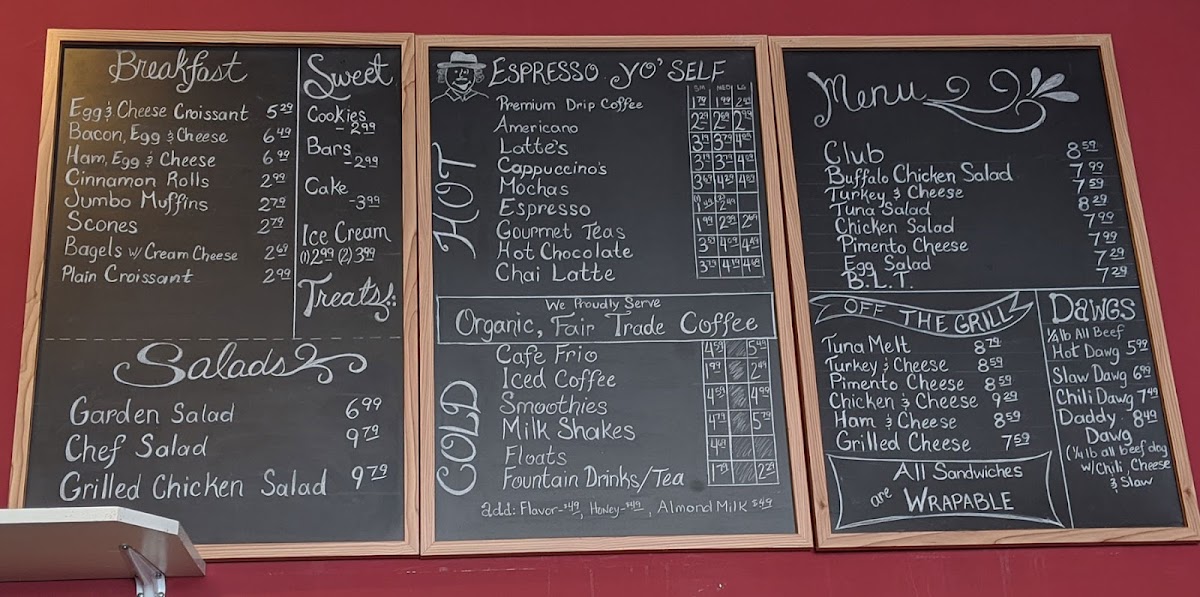 Breakfast
Egg & Cheese Croissant 5.29
Bacon, Egg & Cheese 6.49
Ham, Egg & Cheese 6.99
Cinnamon Rolls 2.99
Jumbo Muffins 2.79
Scones 2.79
Bagels w/ Cream Cheese 2.69
Plain Croissant 2.99
Sweet
Cookies
- 2.99
Bars
- 2.99
Cake
- 3.99
Ice Cream
(1) 2.99 (2) 3.99
Treats
Salads
Garden Salad 6.99
Chef Salad 9.79
Grilled Chicken Salad 9.79
ESPRESSO YO' SELF
HOT
SM MED LG
Premium Drip Coffee 1.79 1.99
Americano 2.29 2.69 2.99
Latte's
Cappuccino's
Mochas
Espresso
Gourmet Teas
Hot Chocolate
Chai Latte
We Proudly Serve
Organic, Fair Trade Coffee
COLD
Cafe Frio 4.59 5.49
Iced Coffee 1.99
Smoothies 4.59 4.99
Milk Shakes 4.79 5.79
Floats 4.69
Fountain Drinks/Tea 1.79 2.29
add: Flavor - $.49, Honey - $.49, Almond Milk $.49
Menu
Club 8.59
Buffalo Chicken Salad 7.99
Turkey & Cheese 7.59
Tuna Salad 8.29
Chicken Salad 7.99
Pimento Cheese 7.99
Egg Salad 7.29
B.L.T. 7.29
OFF THE GRILL
Tuna Melt 8.79
Turkey & Cheese 8.59
Pimento Cheese 8.59
Chicken & Cheese 9.29
Ham & Cheese 8.59
Grilled Cheese 7.59
All Sandwiches
are WRAPABLE
DAWGS
1/4 lb All Beef
Hot Dawg 5.99
Slaw Dawg 6.99
Chili Dawg 7.49
Daddy 8.49
Dawg
(1/4 lb all beef dog
w/ Chili, Cheese
& Slaw